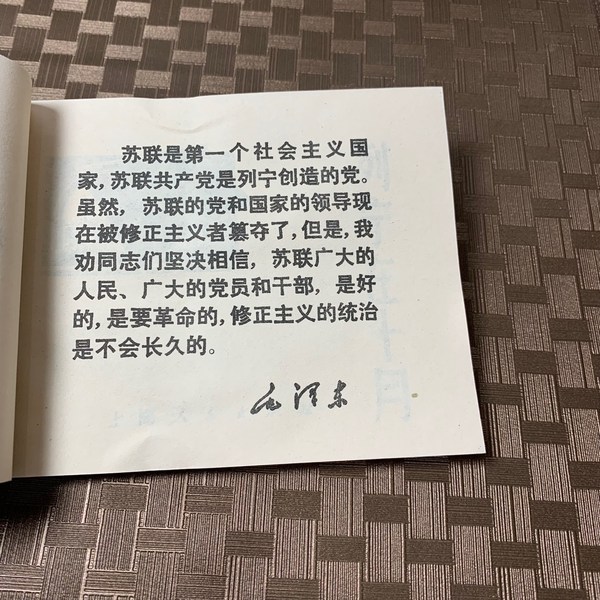 苏联是第一个社会主义国
家,苏联共产党是列宁创造的党。
虽然,苏联的党和国家的领导现
在被修正主义者篡夺了,但是,我
劝同志们坚决相信,苏联广大的
人民、广大的党员和干部,是好
的,是要革命的,修正主义的统治
是不会长久的。
毛泽东